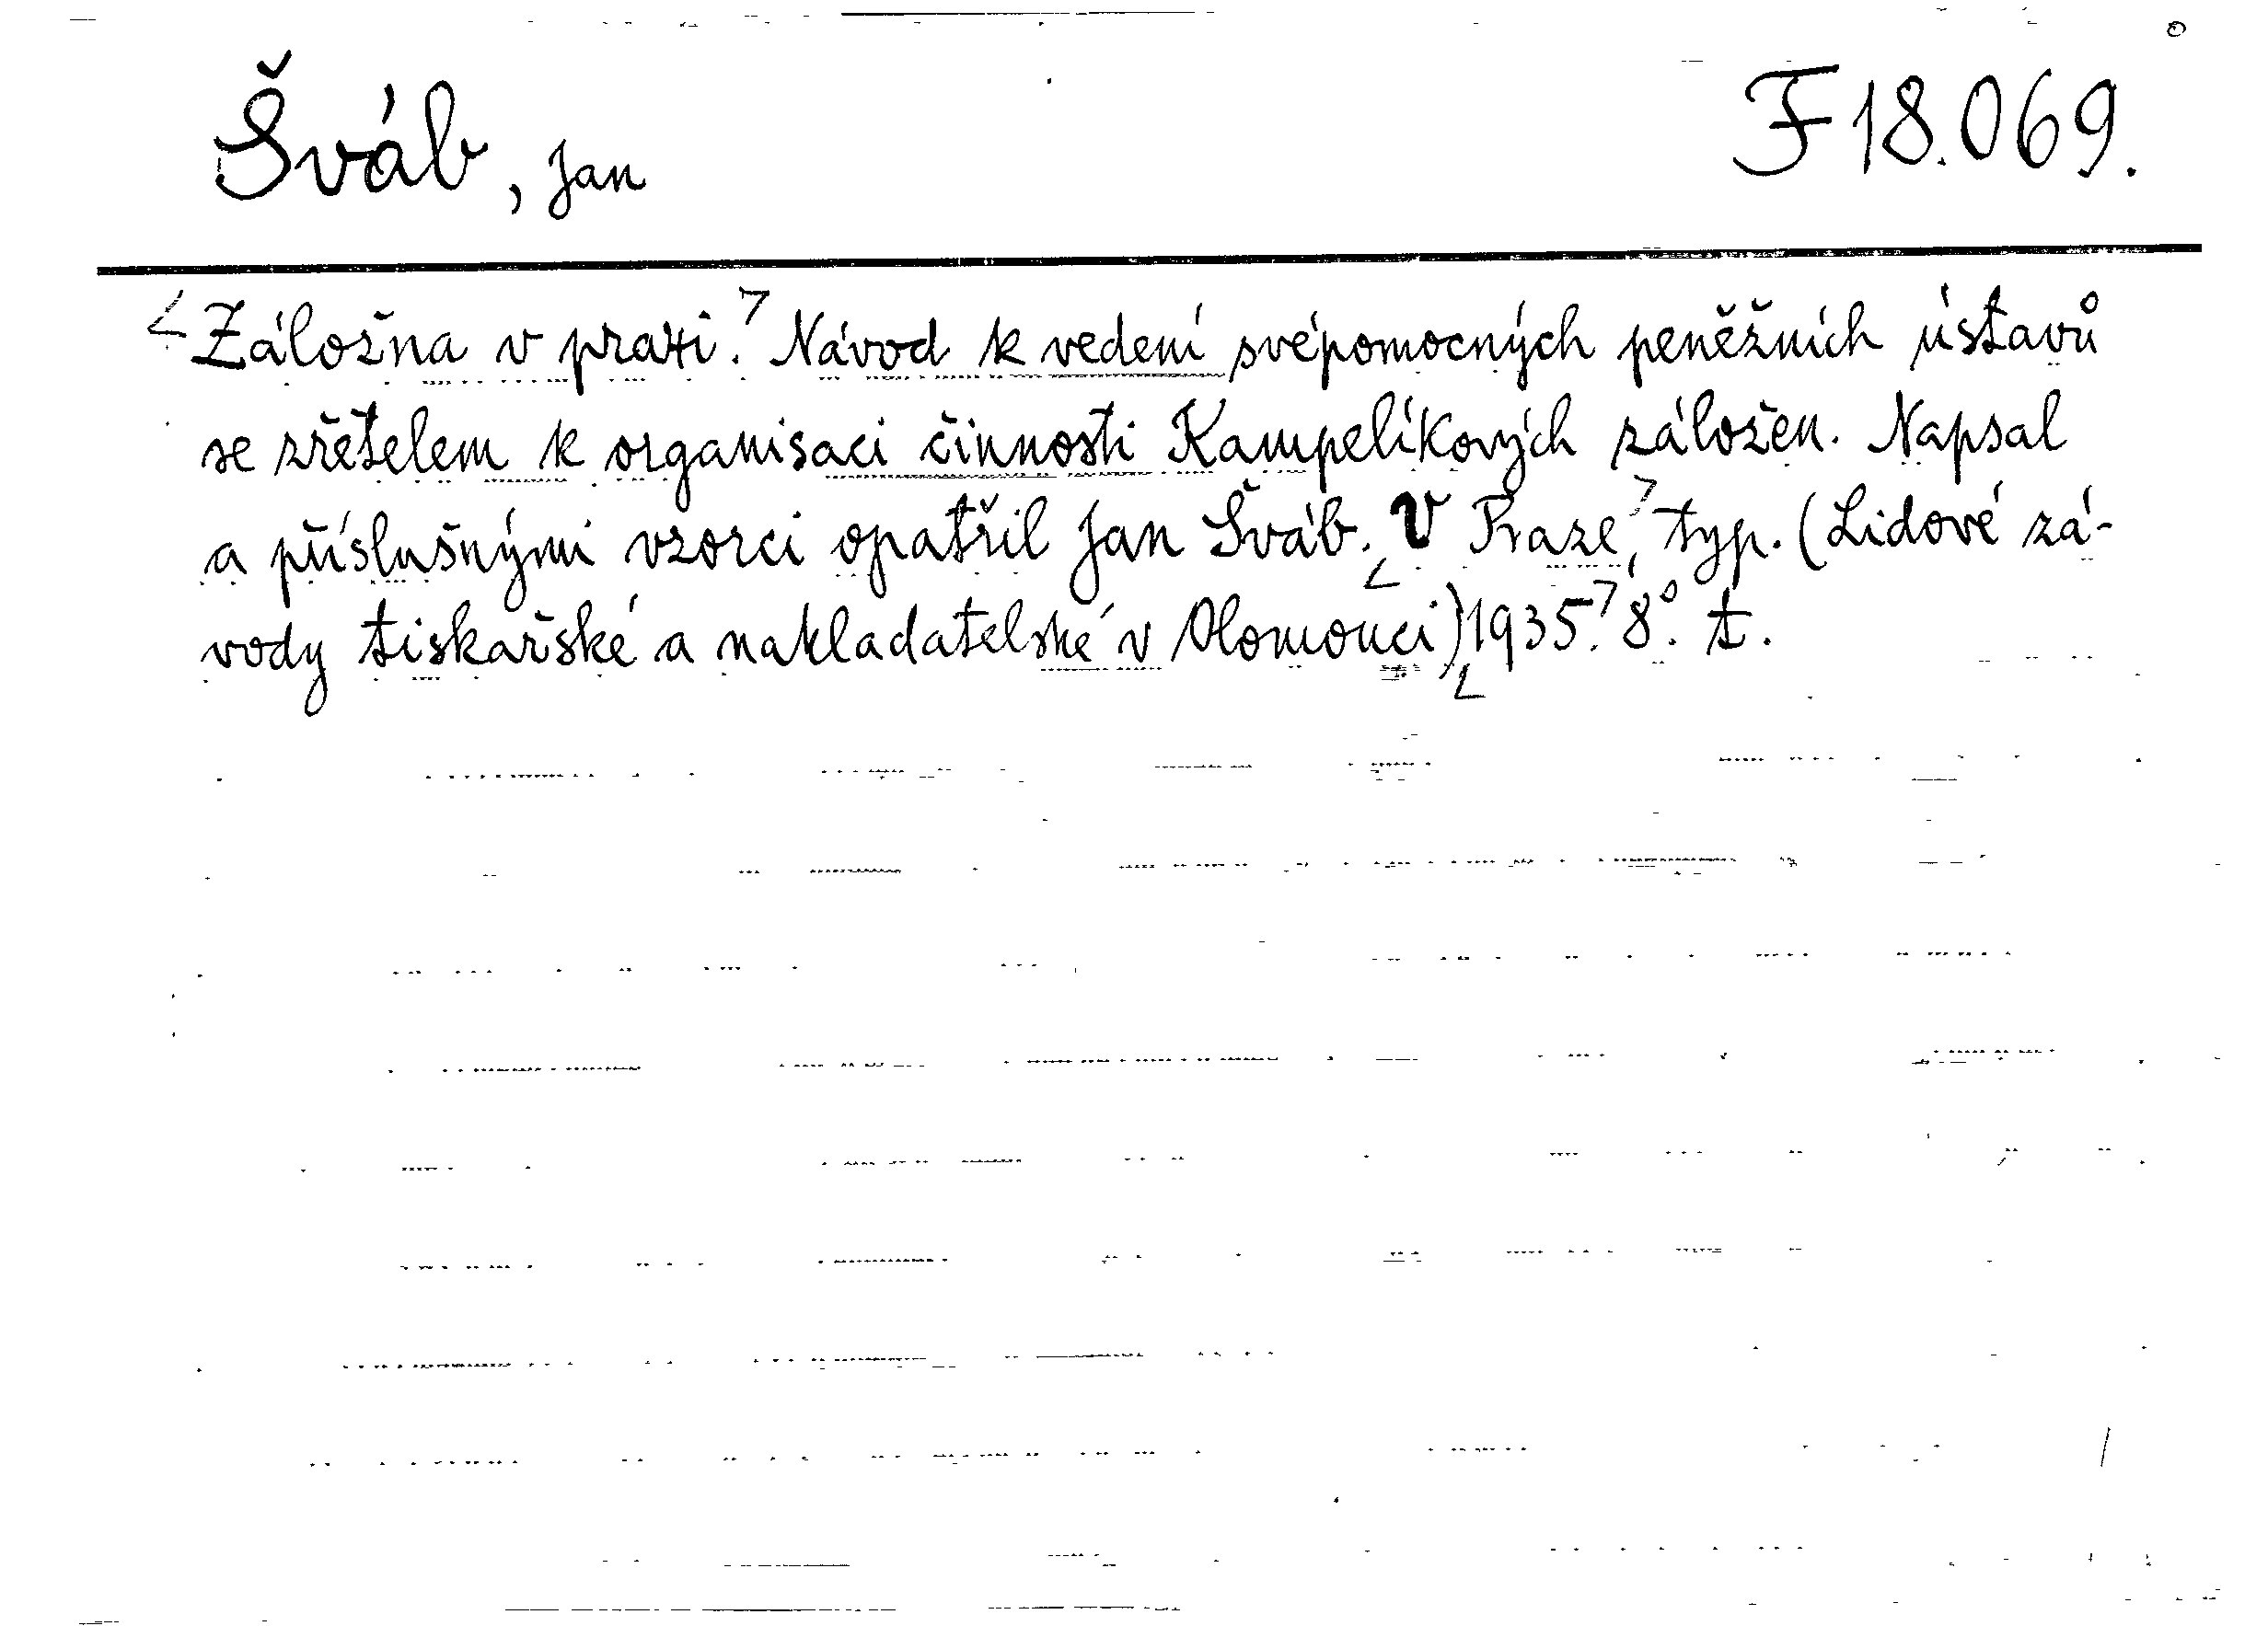 Šváb, Jan F 18.069.
<Záložna v praxi.> Návod k vedení svépomocných peněžních ústavů
se zřetelem k organisaci činnosti Kampelíkových záložen. Napsal
a příslušnými vzorci opatřil Jan Šváb. <V Praze,> typ. (Lidové zá-
vody tiskařské a nakladatelské v Olomouci) <1935.> 8°. t.